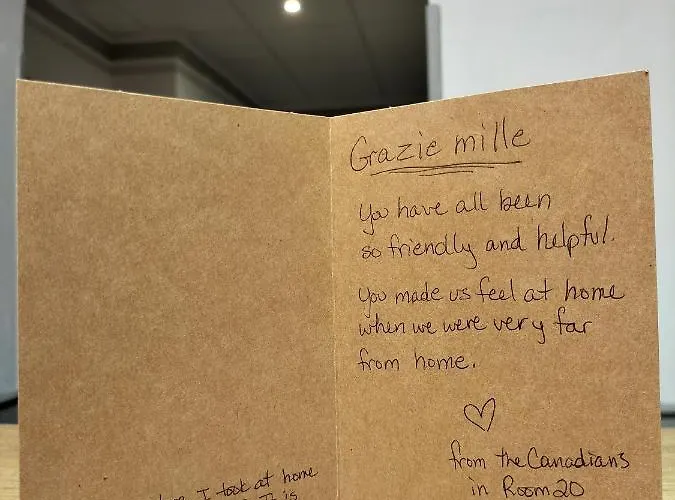 I took at home
is
Grazie mille
You have all been
so friendly and helpful.
You made us feel at home
when we were very far
from home.
from the Canadians
in Room 20